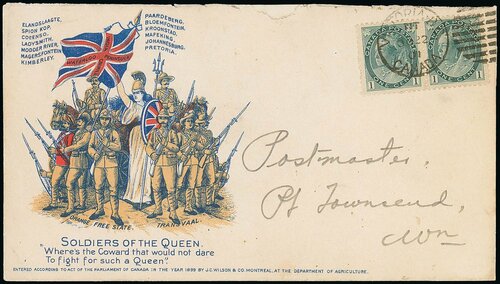 ELANDSLAAGTE,
SPION KOP,
COLENSO,
LADYSMITH,
MODDER RIVER,
MAGERSFONTEIN
KIMBERLEY.
PAARDEBERG.
BLOEMFONTEIN
KROONSTAD,
MAFEKING,
JOHANNESBURG,
PRETORIA.
WATERLOO
PENINSULA
ORANGE FREE STATE.
TRANSVAAL.
SOLDIERS OF THE QUEEN.
"Where's the Coward that would not dare
To fight for such a Queen".
ENTERED ACCORDING TO ACT OF THE PARLIAMENT OF CANADA IN THE YEAR 1899 BY J.C. WILSON & CO. MONTREAL, AT THE DEPARTMENT OF AGRICULTURE.
CANADA
1 1
1 1
Postmaster,
Pt Townsend,
Wn